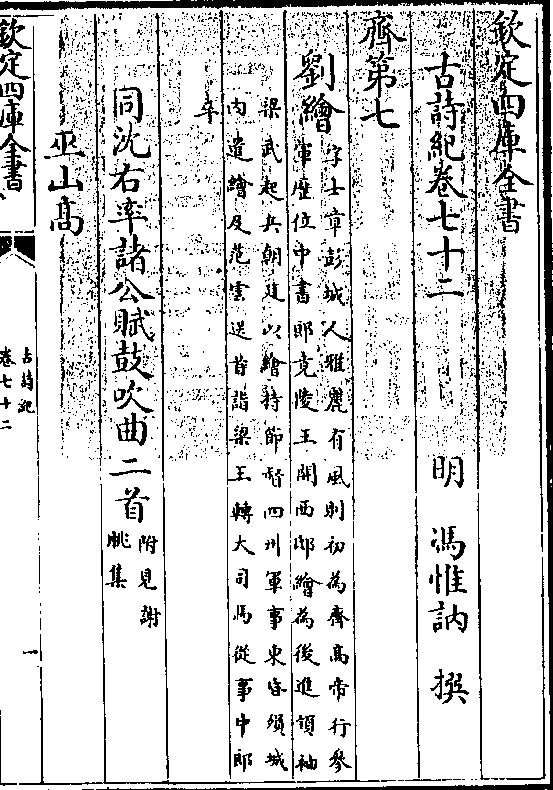 欽定四庫全書
古詩紀卷七十二
明 馮惟訥 撰
齊第七
劉繪
字士章彭城人雅麗有風則初為齊高帝行參
軍歴位中書郎竟陵王開西邸繪為後進領袖
梁武起兵朝廷以繪持節督四州軍事東昏殞城
内遣繪及范雲送首詣梁王轉大司馬從事中郎
卒
同沈右率諸公賦鼓吹曲二首
附見謝
朓集
巫山高
欽定四庫全書
古詩紀
卷七十二
一